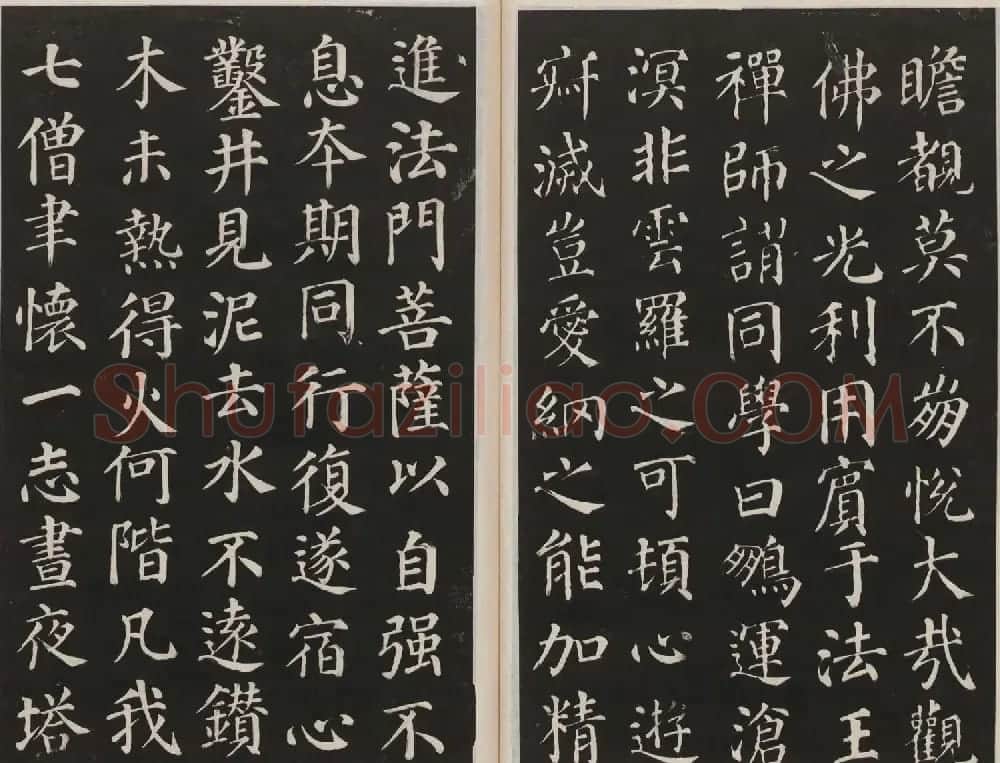 瞻覩莫不崩悅大哉觀
佛之光利用賓于法王
禪師謂同學曰鵬運滄
溟非雲羅之可頓心遊
寂滅豈愛網之能加精
進法門菩薩以自强不
息本期同行復遂宿心
鑿井見泥去水不遠鑽
木未熱得火何階凡我
七僧聿懷一志晝夜塔
Shufaziliao.COM